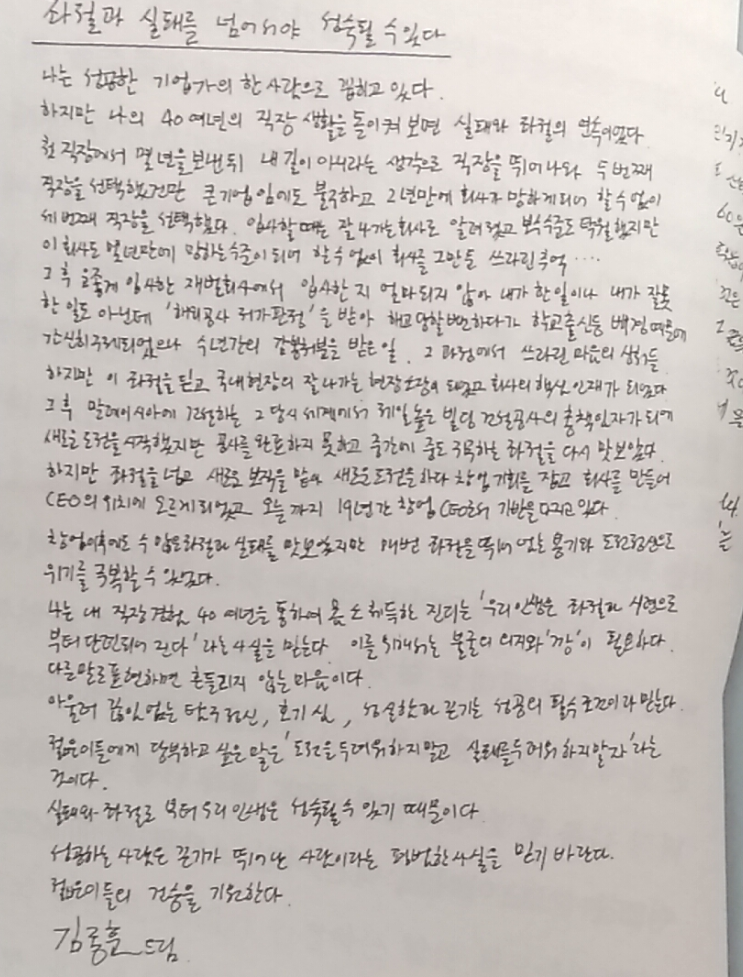 좌절과 실패를 넘어서야 성숙될 수 있다
나는 성공한 기업가의 한 사람으로 꼽히고 있다.
하지만 나의 40여년의 직장 생활을 돌이켜 보면 실패와 좌절의 연속이었다
첫 직장에서 몇 년을 보낸 뒤 내 길이 아니라는 생각으로 직장을 뛰어나와 두 번째
직장을 선택했건만 큰 기업임에도 불구하고 2년만에 회사가 망하게 되어 할 수 없이
세 번째 직장을 선택했다. 입사할 때는 잘 나가는 회사로 알려졌고 보수수준도 탁월했지만
이 회사도 몇년만에 망하는 수준이 되어 할 수 없이 회사를 그만둔 쓰라린 추억 ....
그 후 운좋게 입사한 재벌회사에서 입사한 지 얼마되지 않아 내가 한 일이나 내가 잘못
한 일도 아닌데 '해외공사 허가 판정'을 받아 해고당할 뻔하다가 학교 출신등 배경 때문에
간신히 구제되었으나 수년간의 감봉처분을 받은 일. 그 과정에서 쓰라린 마음의 상처들
하지만 이 좌절을 딛고 국내현장의 잘 나가는 현장소장이 되었고 회사의 핵심인재가 되었다
그 후 말레이시아에 건설하는 그 당시 세계에서 제일 높은 빌딩 건설공사의 총책임자가 되어
새로운 도전을 시작했지만 공사를 완료하지 못하고 중간에 중도 귀국하는 좌절을 다시 맛보았다.
하지만 좌절을 넘고 새로운 보직을 맡아 새로운 도전을 하다 창업기회를 잡고 회사를 만들어
CEO의 위치에 오르게 되었고 오늘까지 19년간 창업 CEO로서 기반을 다지고 있다.
창업이후에도 수 많은 좌절과 실패를 맛보았지만 매번 좌절을 뛰어 넘는 용기와 도전정신으로
위기를 극복할 수 있었다.
나는 내 직장 경험 40여년을 통하여 몸소 취득한 진리는 '우리 인생은 좌절과 시련으로
부터 단련되어 진다'라는 사실을 믿는다 이를 위해서는 불굴의 의지와 '깡'이 필요하다.
다른 말로 표현하면 흔들리지 않는 마음이다.
아울러 끊임없는 탐구정신, 호기심, 성실함과 끈기는 성공의 필수조건이라 믿는다.
젊은이들에게 당부하고 싶은 말은 '도전을 두려워하지 말고 실패를 두려워 하지 말자'라는
것이다.
실패와 좌절로 부터 우리 인생은 성숙될 수 있기 때문이다.
성공하는 사람은 끈기가 뛰어난 사람이라는 평범한 사실을 믿기 바란다.
젊은이들의 건승을 기원한다.
김종훈 드림